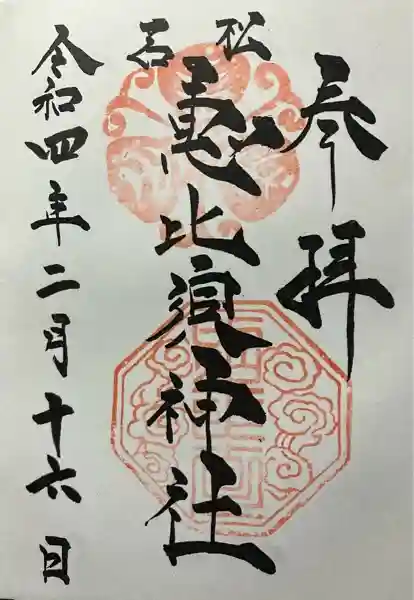 奉拝
若松
恵比須神社
令和四年二月十六日